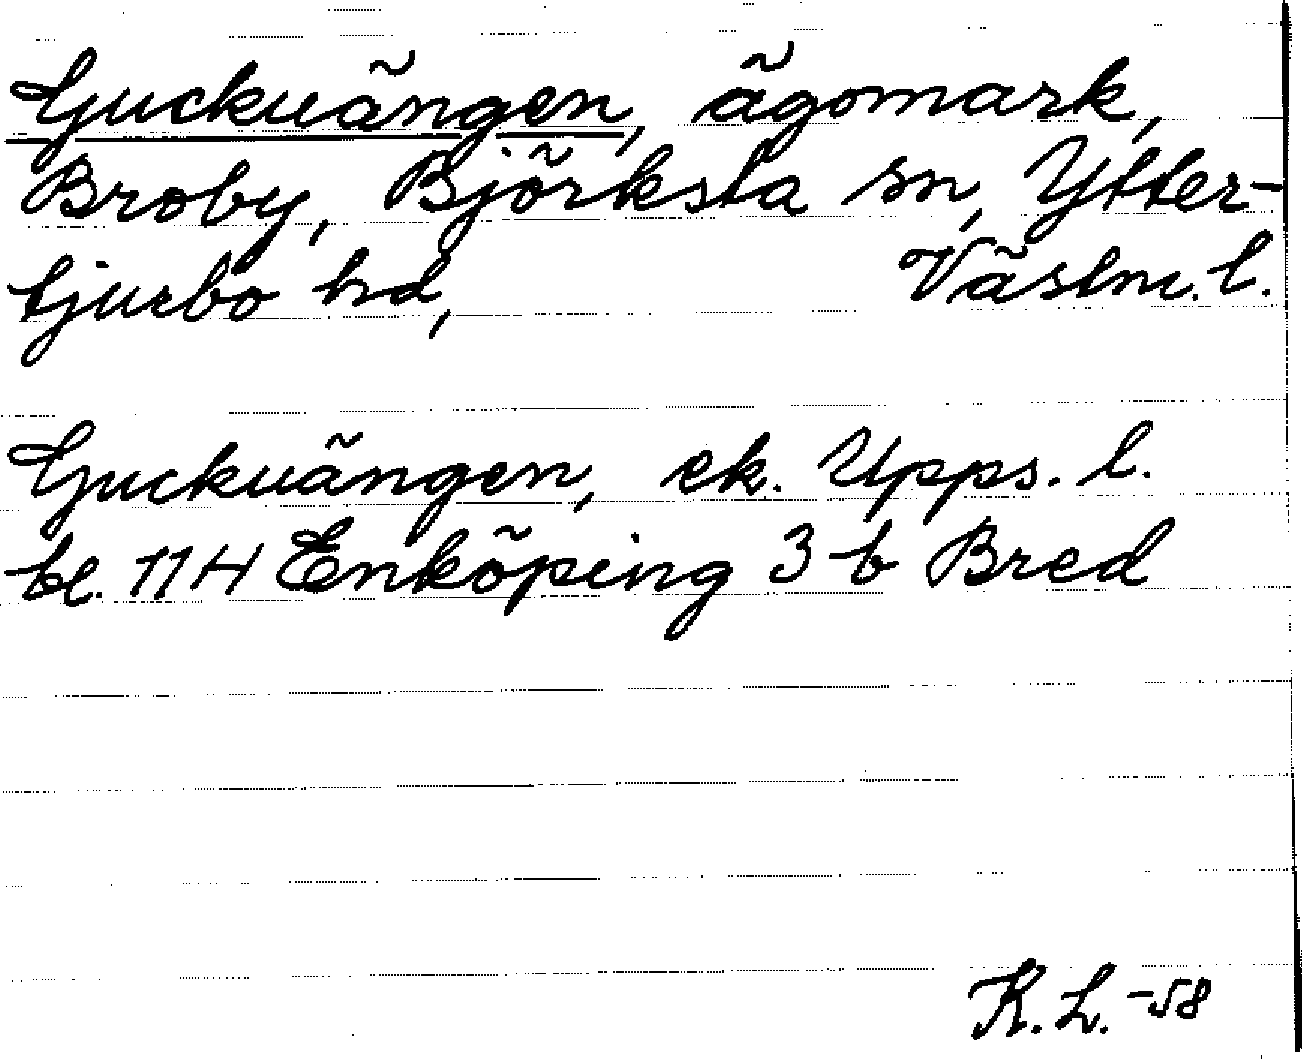 Guckuängen, ägomark,
Broby, Björksta sn, Ytter-
tjurbo hd, Västm. l.
Guckuängen, ek. Upps. l.
bl. 11H Enköping 3 b Bred
K. L. -58